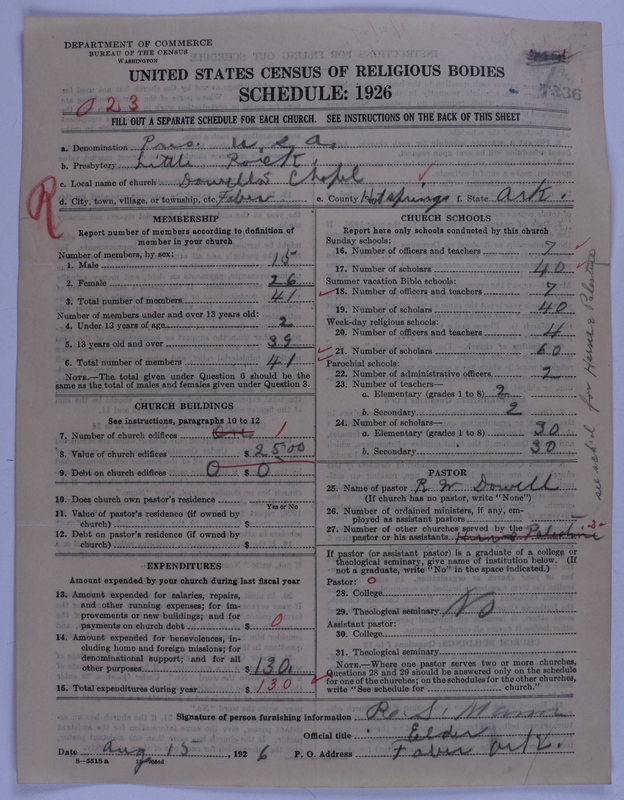 DEPARTMENT OF COMMERCE
BUREAU OF THE CENSUS
WASHINGTON
UNITED STATES CENSUS OF RELIGIOUS BODIES
SCHEDULE: 1926
023
7336
FILL OUT A SEPARATE SCHEDULE FOR EACH CHURCH. SEE INSTRUCTIONS ON THE BACK OF THIS SHEET
a. Denomination Pres. U.S.A.
b. Presbytery Little Rock.
c. Local name of church Dowell's Chapel
d. City, town, village, or township, etc. Faber e. County Hotsprings f. State Ark.
R
MEMBERSHIP
Report number of members according to definition of
member in your church
Number of members, by sex:
1. Male 15
2. Female 26
3. Total number of members 41
Number of members under and over 13 years old:
4. Under 13 years of age 2
5. 13 years old and over 39
6. Total number of members 41
NOTE.—The total given under Question 6 should be the
same as the total of males and females given under Question 3.
CHURCH BUILDINGS
See instructions, paragraphs 10 to 12
7. Number of church edifices One 1
8. Value of church edifices $ 2500
9. Debt on church edifices 0 $ 0
10. Does church own pastor's residence
Yes or No
11. Value of pastor's residence (if owned by
church) $
12. Debt on pastor's residence (if owned by
church) $
EXPENDITURES
Amount expended by your church during last fiscal year
13. Amount expended for salaries, repairs,
and other running expenses; for im-
provements or new buildings; and for
payments on church debt $ 0
14. Amount expended for benevolences, in-
cluding home and foreign missions; for
denominational support; and for all
other purposes $ 130
15. Total expenditures during year $ 130
CHURCH SCHOOLS
Report here only schools conducted by this church
Sunday schools:
16. Number of officers and teachers 7
17. Number of scholars 40
Summer vacation Bible schools:
18. Number of officers and teachers 7
19. Number of scholars 40
Week-day religious schools:
20. Number of officers and teachers 4
21. Number of scholars 60
Parochial schools:
22. Number of administrative officers 2
23. Number of teachers—
a. Elementary (grades 1 to 8) 2
b. Secondary 2
24. Number of scholars—
a. Elementary (grades 1 to 8) 30
b. Secondary 30
PASTOR
25. Name of pastor R. W. Dowell
(If church has no pastor, write "None")
26. Number of ordained ministers, if any, em-
ployed as assistant pastors
27. Number of other churches served by the 2
pastor or his assistants & Palestine
If pastor (or assistant pastor) is a graduate of a college or
theological seminary, give name of institution below. (If
not a graduate, write "No" in the space indicated.)
Pastor: 0
28. College
29. Theological seminary No
Assistant pastor:
30. College
31. Theological seminary
NOTE.—Where one pastor serves two or more churches,
Questions 28 and 29 should be answered only on the schedule
for one of the churches; on the schedules for the other churches,
write "See schedule for church."
see sch'd for & Palestine
Signature of person furnishing information
Official title Elder
Date Aug 15, 1926 P. O. Address Faber Ark.
8—5518 a